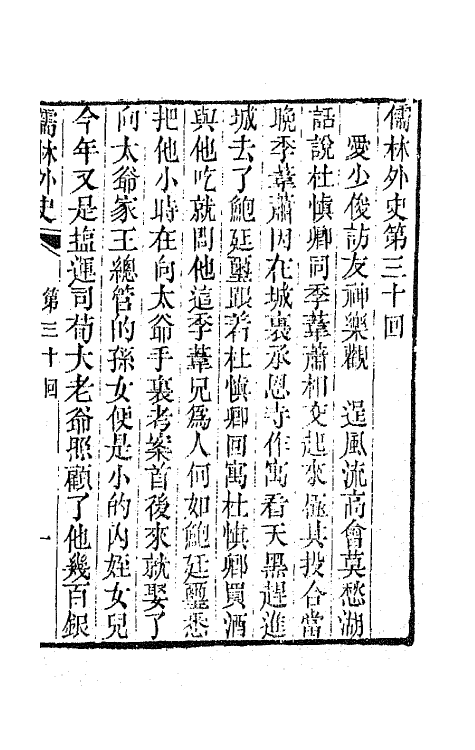 儒林外史第三十回
愛少俊訪友神樂觀　逞風流高會莫愁湖
話說杜慎卿同季葦蕭相交起來極其投合當
晚季葦蕭因在城裏承恩寺作寓看天黑趕進
城去了鮑廷璽跟着杜慎卿回寓杜慎卿買酒
與他吃就問他這季葦兄爲人何如鮑廷璽悉
把他小時在向太爺手裏考案首後來就娶了
向太爺家王總管的孫女便是小的內姪女兒
今年又是鹽運司荀大老爺照顧了他幾百銀
儒林外史　第三十回　一